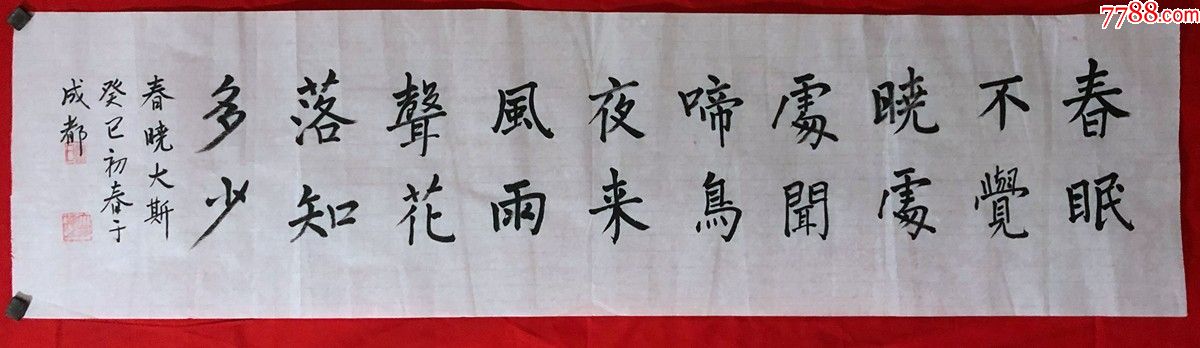 春眠
不覺
曉處
處聞
啼鳥
夜来
風雨
聲花
落知
多少
春曉大斯
癸巳初春于
成都
7788.com